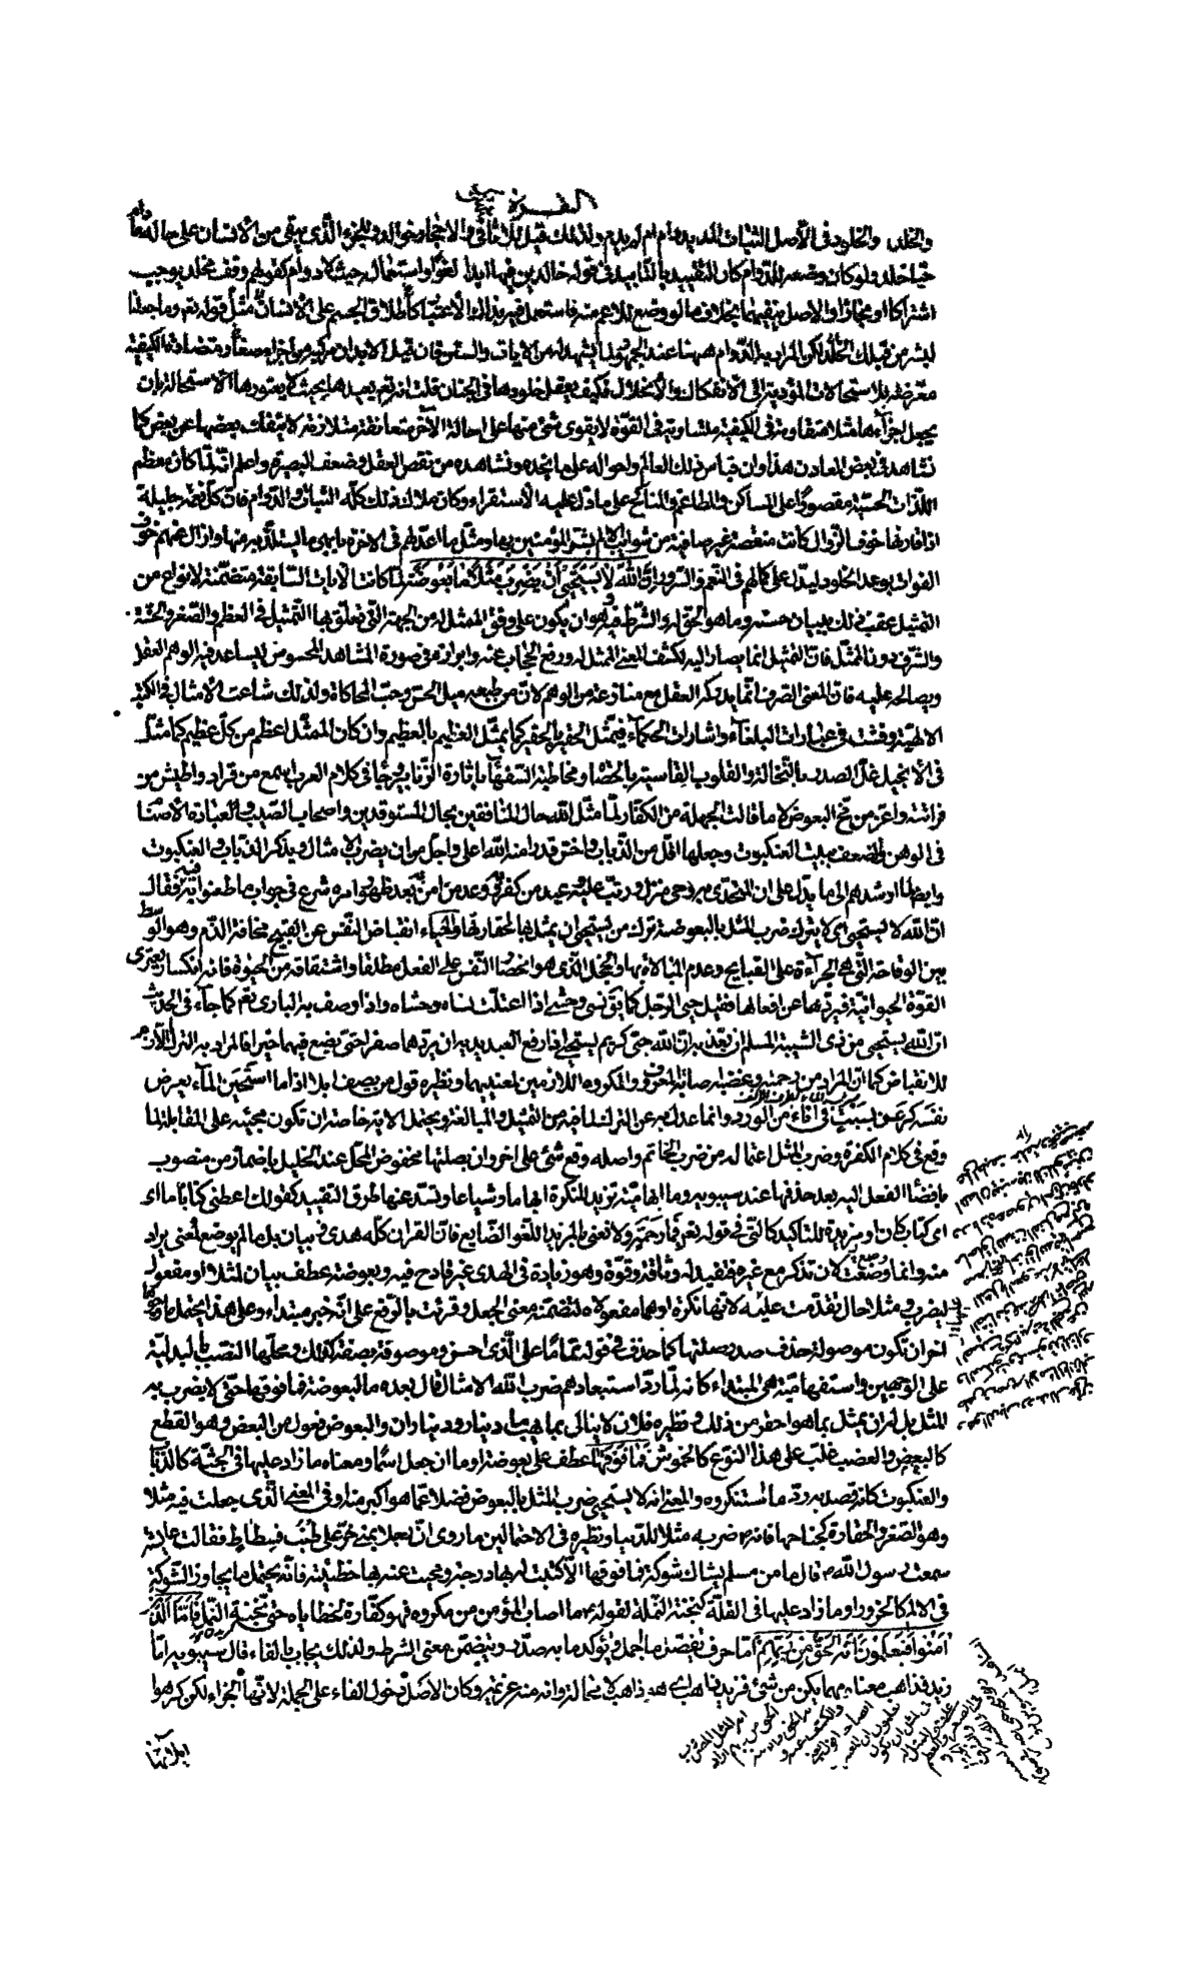 البقرة
والخلد والخلود في الأصل الثبات المديد دام ام لم يدم ولذلك قيل للاثافي والاحجار خوالد وللجزء الذي يبقى من الانسان على حاله مادام
حيا خلد ولو كان وضعه للدوام كان التقييد بالتأبيد في قوله خالدين فيها ابدا لغوا واستعماله حيث لا دوام كقولهم وقف مخلد يوجب
اشتراكا او مجازا والاصل ينفيهما بخلاف ما لو وضع للاعم منه فاستعمل فيه بذلك الاعتبار كاطلاق الجسم على الانسان مثل قوله تعم وما جعلنا
لبشر من قبلك الخلد لكن المراد به الدوام ههنا عند الجمهور لما يشهد له من الايات والسنن فان قيل الابدان مركبة من اجزاء متضادة الكيفية
معرضة للاستحالات المؤدية الى الانفكاك والانحلال فكيف يعقل خلودها في الجنان قلت انه تعم يعيدها بحيث لا يعتورها الاستحالة بان
يجعل اجزاءها مثلا متقاومة في الكيفية متساوية في القوة لا يقوى شئ منها على احالة الآخر متعانقة متلازمة لا ينفك بعضها عن بعض كما
نشاهد في بعض المعادن هذا وان قياس ذلك العالم واحواله على ما نجده ونشاهده من نقص العقل وضعف البصيرة واعلم انه لما كان معظم
اللذات الحسية مقصورا على المساكن والمطاعم والمناكح على ما دل عليه الاستقراء وكان ملاك ذلك كله الثبات والدوام فان كل نعمة جليلة
اذا قارنها خوف الزوال كانت منغصة غير صافية من شوائب الالم بشر المؤمنين بها ومثل ما اعد لهم في الاخرة بابهى ما يستلذ به منها وازال عنهم خوف
الفوات بوعد الخلود ليدل على كمالهم في النعم والسرور ان الله لا يستحيي ان يضرب مثلا ما بعوضة لما كانت الآيات السابقة متضمنة لانواع من
التمثيل عقب ذلك ببيان حسنه وما هو الحق له والشرط فيه وهو ان يكون على وفق الممثل له من الجهة التي تعلق بها التمثيل في العظم والصغر والخسة
والشرف دون الممثل فان التمثيل انما يصار اليه لكشف المعنى الممثل له ورفع الحجاب عنه وابرازه في صورة المشاهد المحسوس ليساعد فيه الوهم العقل
ويصالحه عليه فان المعنى الصرف انما يدركه العقل مع منازعة من الوهم لان من طبعه ميل الحس وحب المحاكاة ولذلك شاعت الامثال في الكتب
الالهية وفشت في عبارات البلغاء واشارات الحكماء فيمثل الحقير بالحقير كما يمثل العظيم بالعظيم وان كان الممثل اعظم من كل عظيم كما مثل
في الانجيل غل الصدر بالنخالة والقلوب القاسية بالحصاة ومخاطبة السفهاء باثارة الزنابير وجاء في كلام العرب اسمع من قراد واطيش من
فراشة واعز من مخ البعوض لا ما قالت الجهلة من الكفار لما مثل الله حال المنافقين بحال المستوقدين واصحاب الصيب والعبادة الاصنام
في الوهن والضعف ببيت العنكبوت وجعلها اقل من الذباب واخس قدرا منه الله اعلى واجل من ان يضرب الامثال ويذكر الذباب والعنكبوت
وايضا لما ارشدهم الى ما يدل على ان المتحدى به وحي منزل ورتب عليه وعيد من كفر به ووعد من امن به بعد ظهور امره شرع في جواب ما طعنوا به فيه فقال
ان الله لا يستحيي اي لا يترك ضرب المثل بالبعوضة ترك من يستحيي ان يمثل بها لحقارتها والحياء انقباض النفس عن القبيح مخافة الذم وهو الوسط
بين الوقاحة التي هي الجرأة على القبايح وعدم المبالاة بها والخجل الذي هو انحصار النفس على الفعل مطلقا واشتقاقه من الحيوة فانه انكسار يعتري
القوة الحيوانية فيردها عن افعالها فقيل حيي الرجل كما يق نسي وحشي اذا اعتلت نساه وحشاه واذا وصف به الباري تعم كما جاء في الحديث
ان الله يستحيي من ذي الشيبة المسلم ان يعذبه ان الله حيي كريم يستحيي اذا رفع العبد يديه ان يردهما صفرا حتى يضع فيهما خيرا فالمراد به الترك اللازم
للانقباض كما ان المراد من رحمته وغضبه اصابة المعروف والمكروه اللازمين لمعنييهما ونظيره قول من يصف ابلا اذا ما استحين الماء يعرض
نفسه كرعن بسبت في اناء من الورد وانما عدل به عن الترك لما فيه من التمثيل والمبالغة ويحتمل الاية خاصة ان تكون مجيئه على المقابلة لما
وقع في كلام الكفرة وضرب المثل اعتماله من ضرب الخاتم واصله وقع شئ على اخر وان بصلتها مخفوض المحل عند الخليل باضمار من منصوب
بافضاء الفعل اليه بعد حذفها عند سيبويه وما ابهامية تزيد للنكرة ابهاما وشياعا وتسد عنها طرق التقييد كقولك اعطني كتابا ما اي
اي كتاب كان او مزيدة للتاكيد كالتي في قوله تعم فبما رحمة ولا نعني بالمزيد اللغو الضايع فان القران كله هدى وبيان بل ما لم يوضع لمعنى يراد
منه وانما وضعت لان تذكر مع غيره فتفيد له وثاقة وقوة وهو زيادة في الهدى غير قادح فيه وبعوضة عطف بيان لمثلا او مفعول
ليضرب ومثلا حال تقدمت عليه لانها نكرة او هما مفعولاه لتضمنه معنى الجعل وقرئت بالرفع على انه خبر مبتداء وعلى هذا يحتمل ما وجوها
اخر ان تكون موصولة حذف صدر صلتها كما حذف في قوله تماما على الذي احسن وموصوفة بصفة كذلك ومحلها النصب بالبدلية
على الوجهين واستفهامية هي المبتداء كانه لما رد استبعادهم ضرب الله الامثال قال بعده ما البعوضة فما فوقها حتى لا يضرب به
المثل بل له ان يمثل بما هو احقر من ذلك ونظيره فلان لا يبالي بما يهب ما دينار ودينار ان والبعوض فعول من البعض وهو القطع
كالبضع والعضب غلب على هذا النوع كالخموش فما فوقها عطف على بعوضة او ما ان جعل اسما ومعناه ما زاد عليها في الجثة كالذباب
والعنكبوت كانه قصد به رد ما استنكروه والمعنى انه لا يستحيي ضرب المثل بالبعوض فضلا عما هو اكبر منه او في المعنى الذي جعلت فيه مثلا
وهو الصغر والحقارة كجناحها فانه م ضربه مثلا للدنيا ونظيره في الاحتمالين ما روى ان رجلا بمنى خر على طنب فسطاط فقالت عايشة
سمعت رسول الله م قال ما من مسلم يشاك شوكة فما فوقها الا كتبت له بها درجة ومحيت عنه بها خطيئة فانه يحتمل ما يجاوز الشوكة
في الالم كالخرور او ما زاد عليها في القلة كنخبة النملة لقوله م ما اصاب المؤمن من مكروه فهو كفارة لخطاياه حتى نخبة النملة فاما الذين
امنوا فيعلمون انه الحق من ربهم اما حرف تفصيل ما اجمل ويؤكد ما به صدر ويتضمن معنى الشرط ولذلك يجاب بالفاء قال سيبويه اما
زيد فذاهب معناه مهما يكن من شئ فزيد ذاهب اي هو ذاهب لا محالة وانه منه عزيمة وكان الاصل دخول الفاء على الجملة لانها الجزاء لكن كرهوا
ايلائها